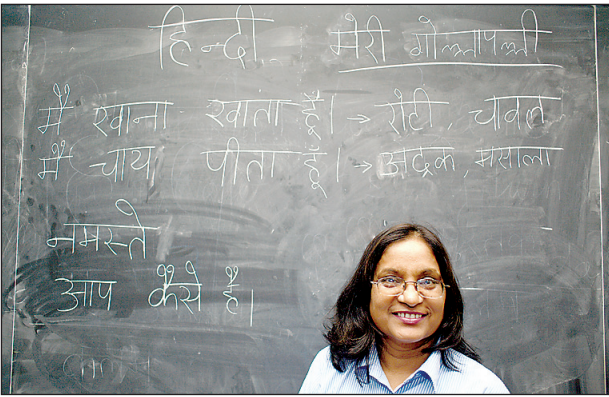 हिन्दी मेरी गोल्लापल्ली
मैं खाना खाता हूँ। → रोटी, चावल
मैं चाय पीता हूँ। → अद्रक, मसाला
नमस्ते
आप कैसे हैं।